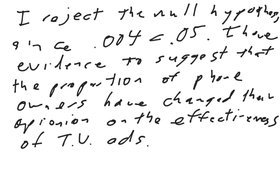 I reject the null hypothesis
since .004 < .05. I have
evidence to suggest that
the proportion of phone
owners have changed their
opinion on the effectiveness
of T.V. ads.